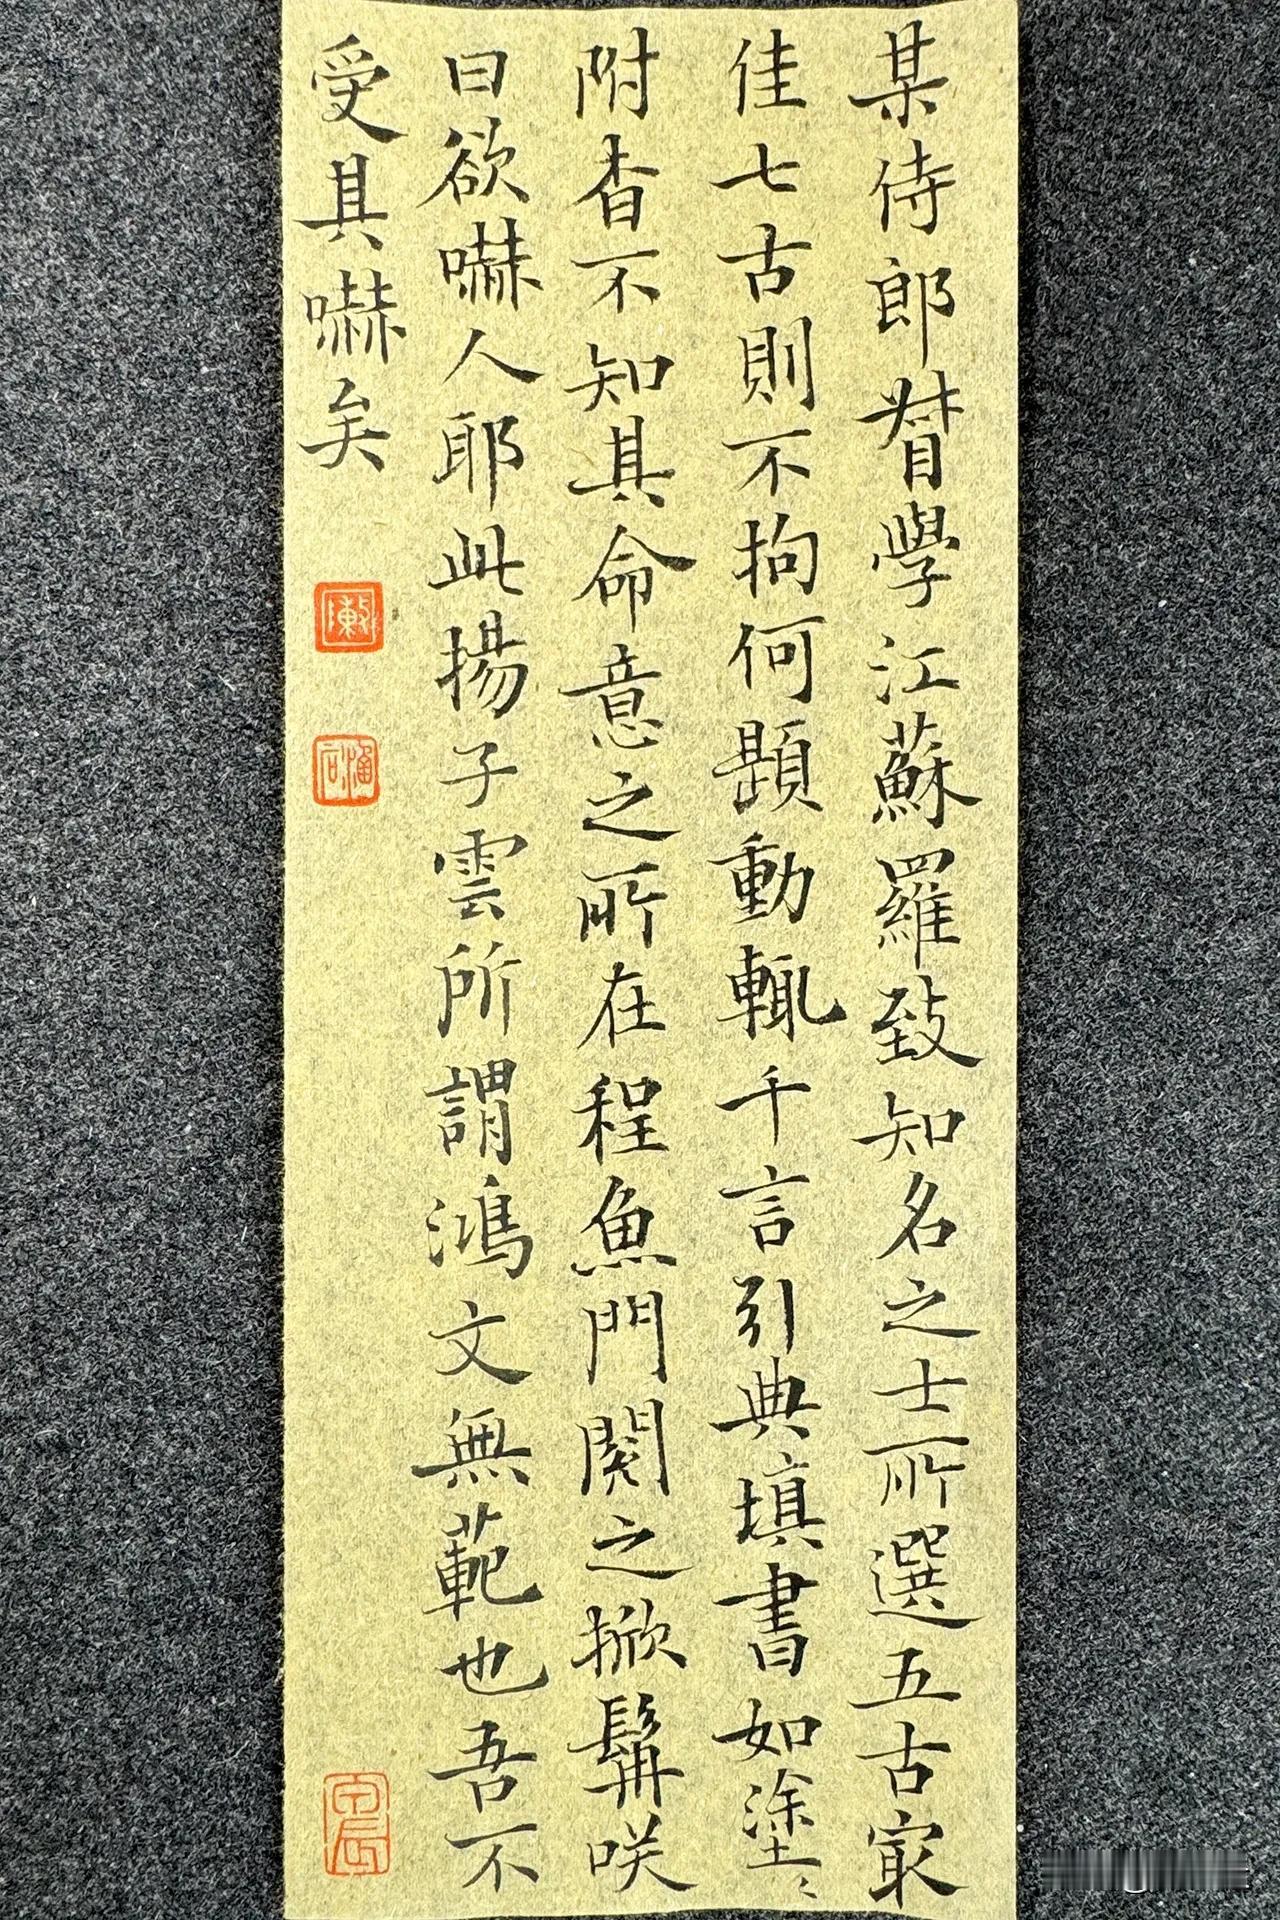 某侍郎督學江蘇羅致知名之士所選五古冣
佳七古則不拘何題動輒千言引典填書如塗〻
附杳不知其命意之所在程魚門閱之掀髯咲
曰欲嚇人耶此揚子雲所謂鴻文無範也吾不
受其嚇矣